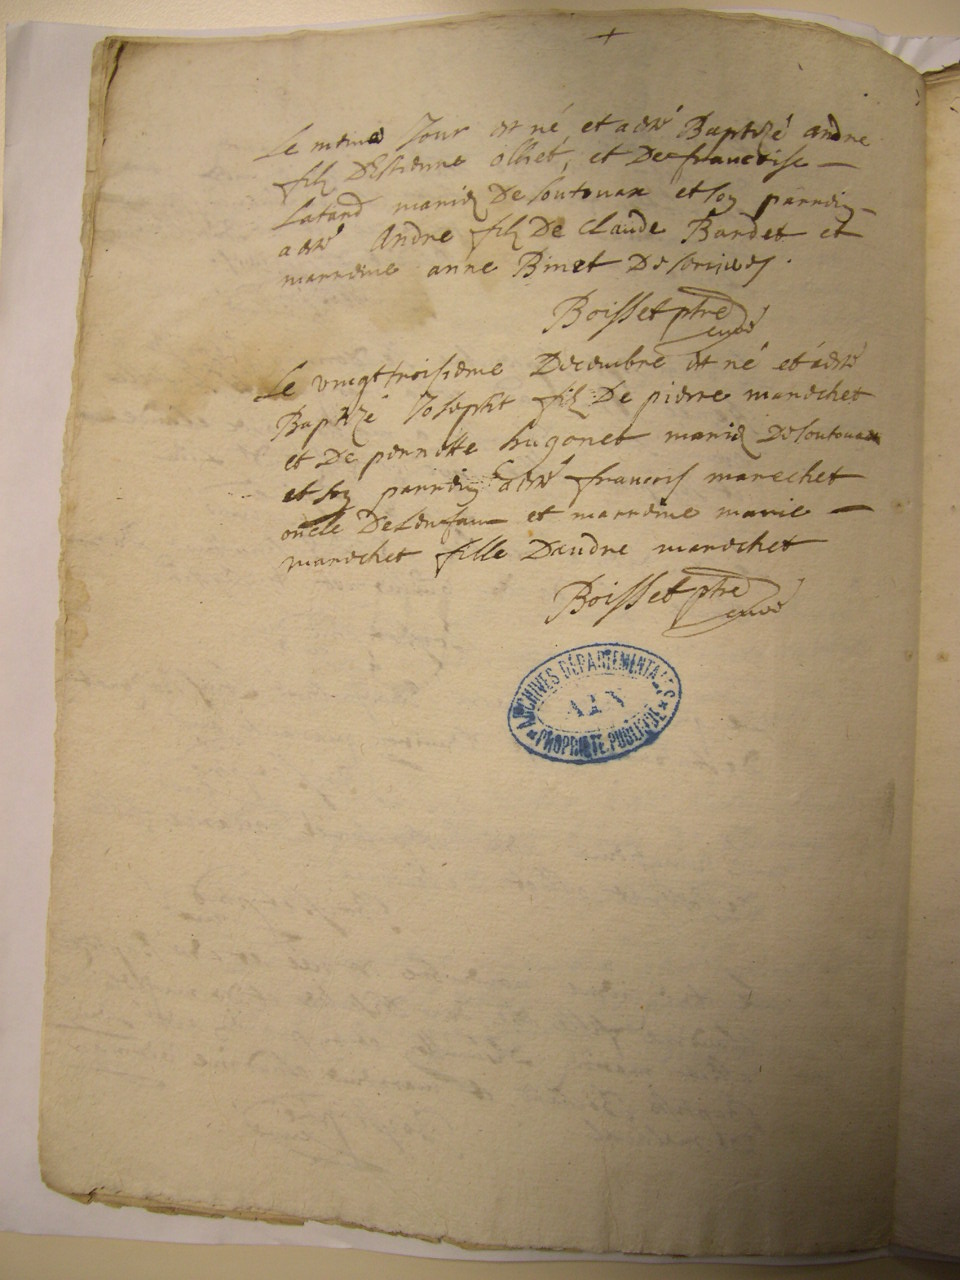 Le meme Jour est né, et a esté Baptizé andre
filz D'Estienne olliet, et De francoise
Latard mariez De Soutouax et Son parrein
a esté Andre filz De Claude Bardet et
marreine anne Binet De
Boisset ptre
curé
Le vingttroisieme Decembre est né et a esté
Baptizé Joseph filz De pierre marechet
et De pernette hugonet mariez De Soutouax
et Son parrein a esté francois marechet
oncle De Lenfant et marreine marie
marechet fille Dandre marechet
Boisset ptre
curé
ARCHIVES DÉPARTEMENTALES
AIN
PROPRIÉTÉ PUBLIQUE